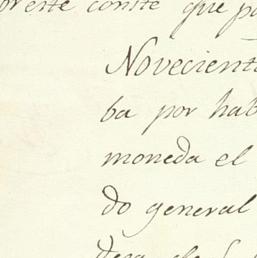 este comite que
Novecient
ba por hab
moneda el
do general